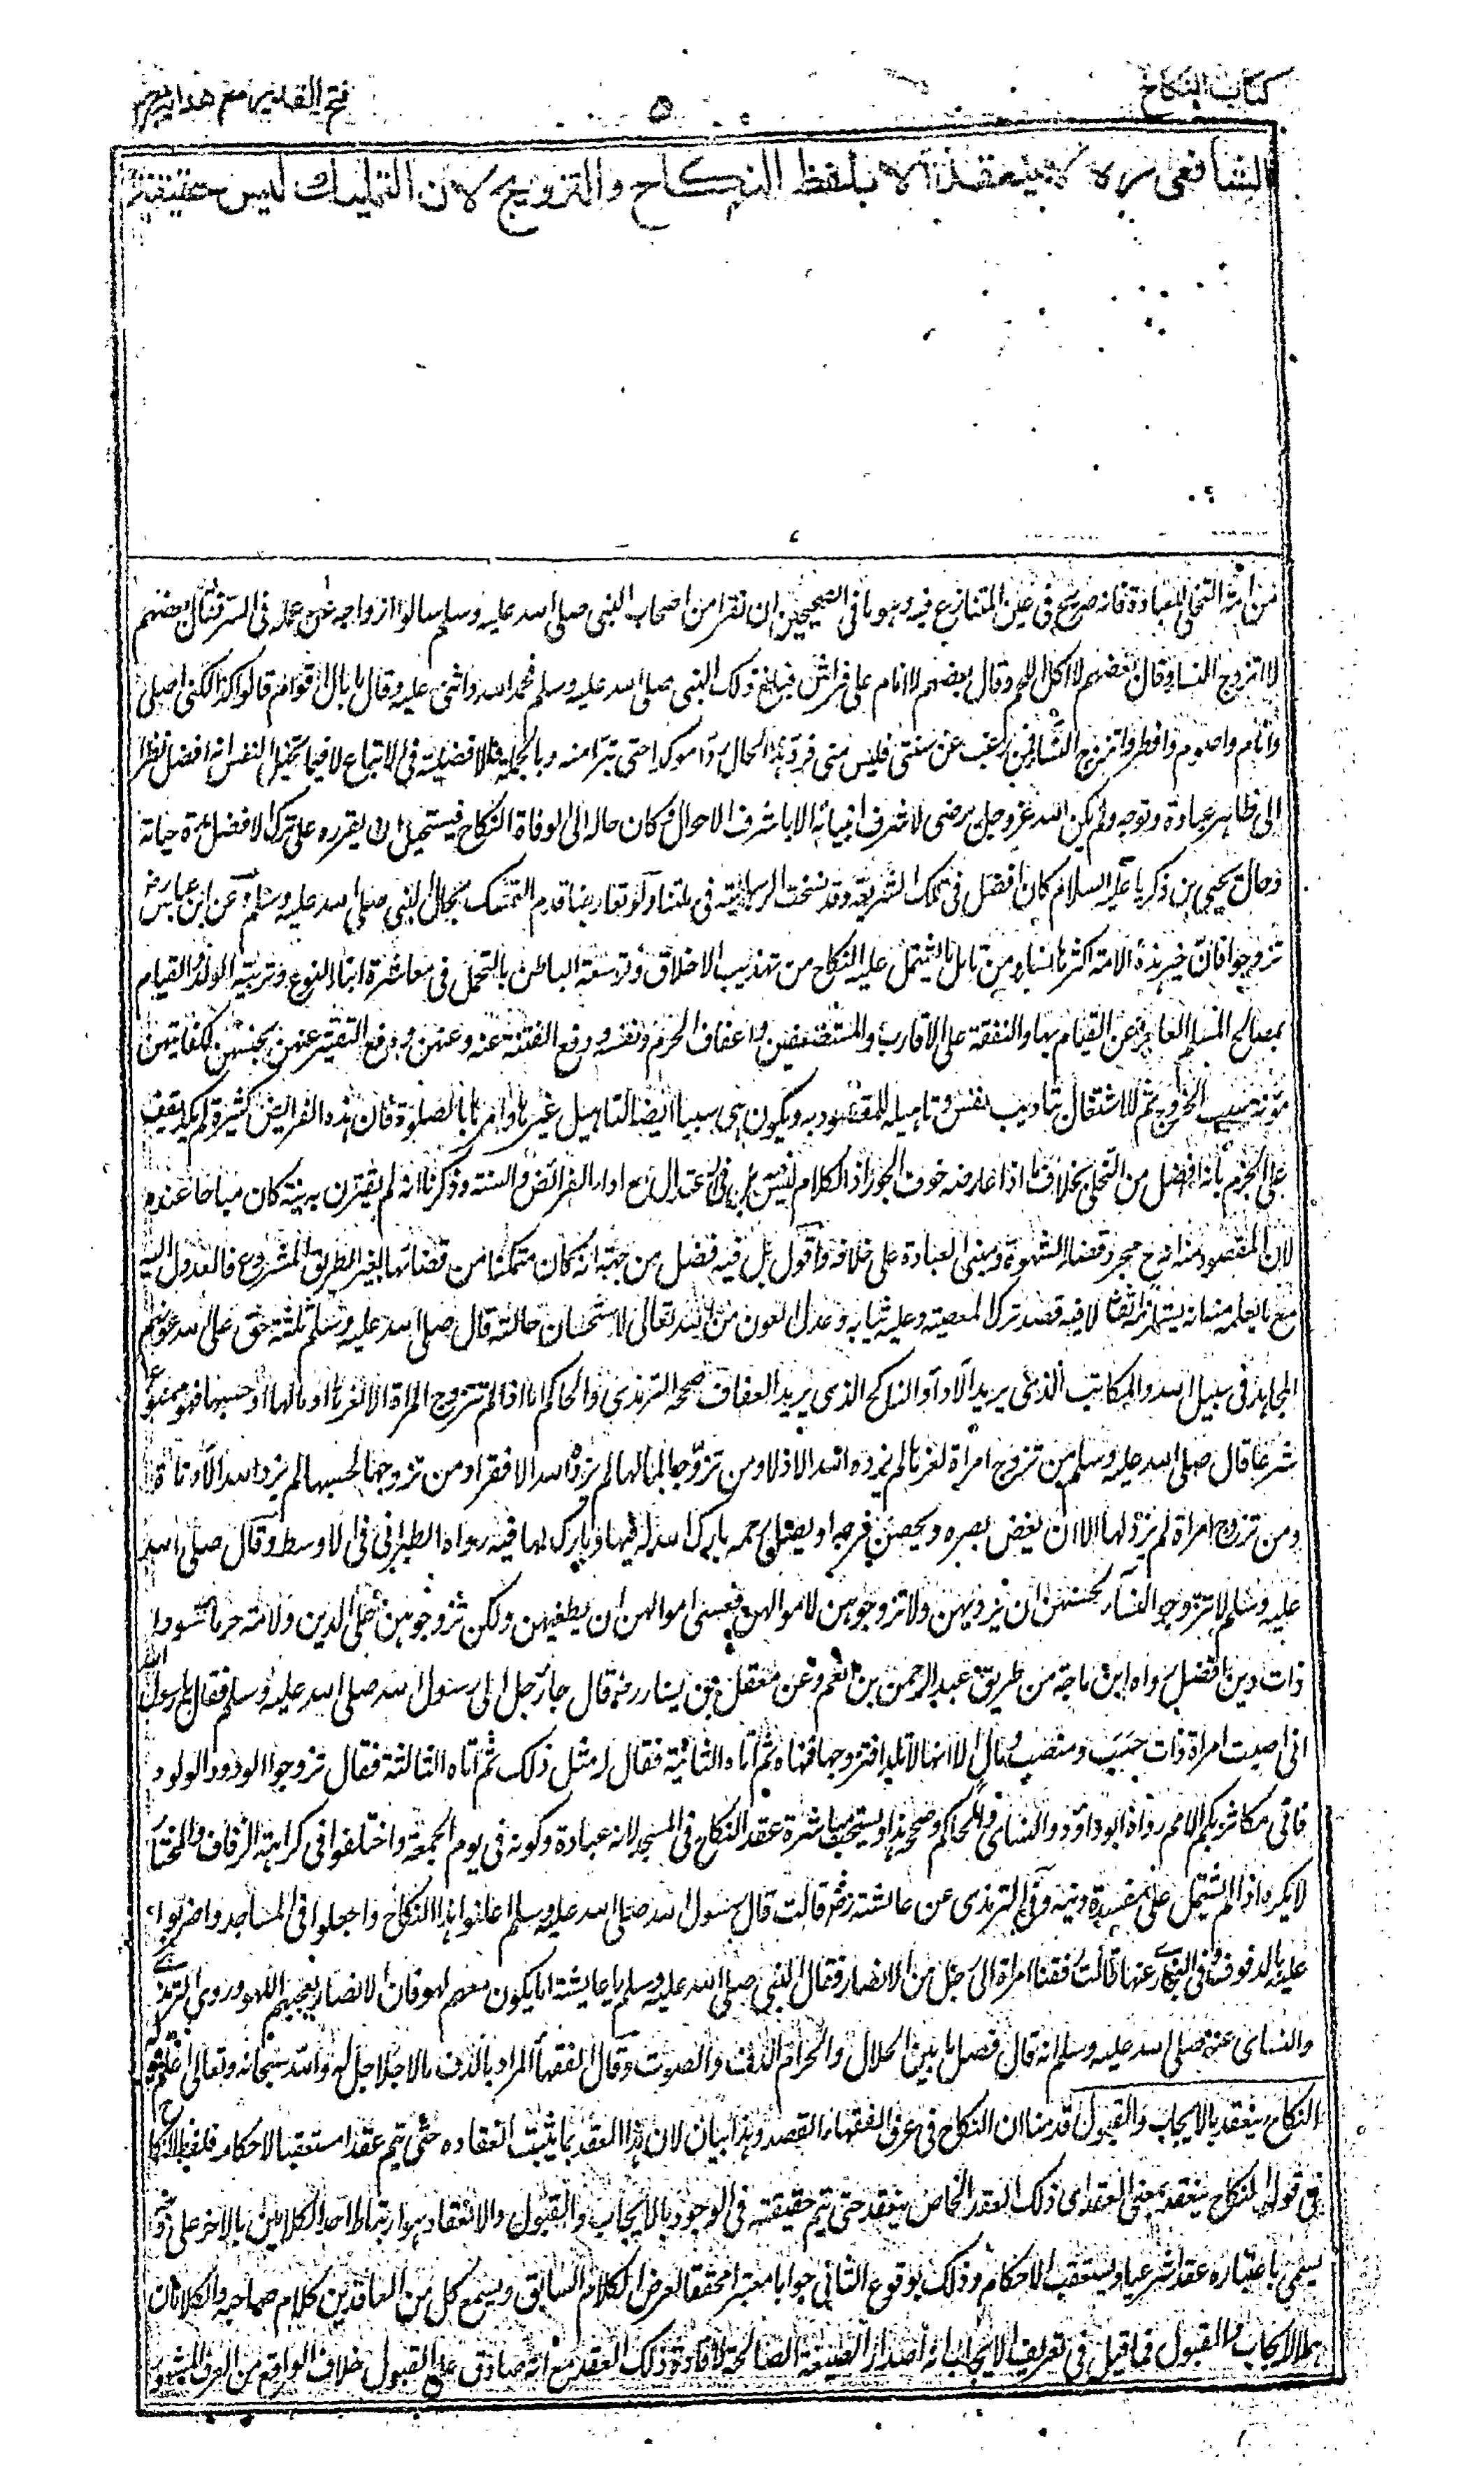 كتاب النكاح
٥
فتح القدير مع هدايه
الشافعي ره لا ينعقد الا بلفظ النكاح والتزويج لان التمليك ليس حقيقة
من امته التخلي للعبادة فانه صريح في عين المتنازع فيه وهو ما في الصحيحين ان نفرا من اصحاب النبي صلى الله عليه وسلم سالوا ازواجه عن عمله في السر فقال بعضهم
لا اتزوج النساء وقال بعضهم لا اكل اللحم وقال بعضهم لا انام على فراش فبلغ ذلك النبي صلى الله عليه وسلم فحمد الله واثنى عليه وقال ما بال اقوام قالوا كذا لكني اصلي
وانام واصوم وافطر واتزوج النساء فمن رغب عن سنتي فليس مني فرد هذا الحال ردا موكدا حتى تبرا منه وبالجملة فالافضلية في الاتباع لا فيما تخيل النفس انه افضل نظرا
الى ظاهر عبادة وتوجه ولم يكن الله عز وجل يرضى لاشرف انبيائه الا باشرف الاحوال وكان حاله الى الوفاة النكاح فيستحيل ان يقرره على ترك الافضل مدة حياته
وحال يحيى بن زكريا عليه السلام كان افضل في تلك الشريعة وقد نسخت الرهبانية في ملتنا ولو تعارضا قدم التمسك بحال النبي صلى الله عليه وسلم وعن ابن عباس رض
تزوجوا فان خير هذه الامة اكثرها نساء ومن تامل ما يشتمل عليه النكاح من تهذيب الاخلاق وتوسعة الباطن بالتحمل في معاشرة ابناء النوع وتربية الولد والقيام
بمصالح المسلم العاجز عن القيام بها والنفقة على الاقارب والمستضعفين واعفاف الحرم ونفسه ودفع الفتنة عنه وعنهن ودفع التقتير عنهن بحبسهن لكفايتهن
مؤنة سبب الخروج ثم الاشتغال بتاديب نفسه وتاهيله للعبودية ويكون هي سببا ايضا لتاهيل غيرها وامرها بالصلوة فان هذه الفرائض كثيرة لم يكد يقف
على الجزم بانه افضل من التخلي بخلاف ما اذا عارضه خوف الجور اذ الكلام ليس فيه بل في الاعتدال مع اداء الفرائض والسنة وذكرنا انه لم يقترن به نية كان مباحا عنده
لان المقصود منه حينئذ مجرد قضاء الشهوة ومبنى العبادة على خلافه واقول بل فيه فضل من جهة انه كان متمكنا من قضائها بغير الطريق المشروع فالعدول اليه
مع ما يعلمه من انه يستلزم اثقالا فيه قصد ترك المعصية وعليه يثاب وعدل العون من الله تعالى لاستحسان حالته قال صلى الله عليه وسلم ثلثة حق على الله عونهم
المجاهد في سبيل الله والمكاتب الذي يريد الاداء والناكح الذي يريد العفاف صححه الترمذي والحاكم اما اذا لم يتزوج المراة الا لعزها او مالها او حسبها فهو ممنوع
شرعا قال صلى الله عليه وسلم من تزوج امراة لعزها لم يزده الله الا ذلا ومن تزوجها لمالها لم يزده الله الا فقرا ومن تزوجها لحسبها لم يزده الله الا دناءة
ومن تزوج امراة لم يرد بها الا ان يغض بصره ويحصن فرجه او يصل رحمه بارك الله له فيها وبارك لها فيه رواه الطبراني في الاوسط وقال صلى الله
عليه وسلم لا تزوجوا النساء لحسنهن فعسى حسنهن ان يرديهن ولا تزوجوهن لاموالهن فعسى اموالهن ان يطغيهن ولكن تزوجوهن على الدين ولامة خرماء سوداء
ذات دين افضل رواه ابن ماجة من طريق عبد الرحمن بن انعم وعن معقل بن يسار رض قال جاء رجل الى رسول الله صلى الله عليه وسلم فقال يا رسول الله
اني اصبت امراة ذات حسب ومنصب ومال الا انها لا تلد افتزوجها فنهاه ثم اتاه الثانية فقال له مثل ذلك ثم اتاه الثالثة فقال تزوجوا الودود الولود
فاني مكاثر بكم الامم رواه ابو داود والنسائي والحاكم وصححه هذا ويستحب مباشرة عقد النكاح في المسجد لانه عبادة وكونه في يوم الجمعة واختلفوا في كراهية الزفاف والمختار
لا يكره اذا لم يشتمل على مفسدة دينية وفي الترمذي عن عائشة رض قالت قال رسول الله صلى الله عليه وسلم اعلنوا هذا النكاح واجعلوا في المساجد واضربوا
عليه بالدفوف وفي البخاري عنها قالت زففنا امراة الى رجل من الانصار فقال النبي صلى الله عليه وسلم يا عايشة اما يكون معهم لهو فان الانصار يعجبهم اللهو وروي الترمذي
والنسائي عنه صلى الله عليه وسلم انه قال فصل ما بين الحلال والحرام الدف والصوت وقال الفقهاء المراد بالدف ما لا جلاجل له والله سبحانه وتعالى اعلم قوله
النكاح ينعقد بالايجاب والقبول قدمنا ان النكاح في عرف الفقهاء العقد وهذا بيان لان هذا العقد بما يثبت انعقاده حتى يتم عقدا مستعقبا لاحكامه فلفظ النكاح
في قوله النكاح ينعقد بمعنى العقد اي ذلك العقد الخاص ينعقد حتى يتم حقيقته في الوجود بالايجاب والقبول والانعقاد هو ارتباط احد الكلامين بالاخر على وجه
يسمى باعتباره عقدا شرعيا ويستعقب الاحكام وذلك بوقوع الثاني جوابا معتبرا محققا لغرض الكلام السابق ويسمع كل من العاقدين كلام صاحبه والكلامان
هما الايجاب والقبول فما قيل في تعريف الايجاب انه اصدار الصيغة الصالحة لافادة ذلك العقد مع انه صادق على القبول خلاف الواقع من العرف المشهور